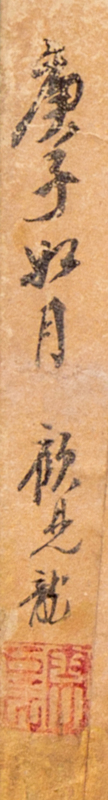 庚子如月 顧見龍